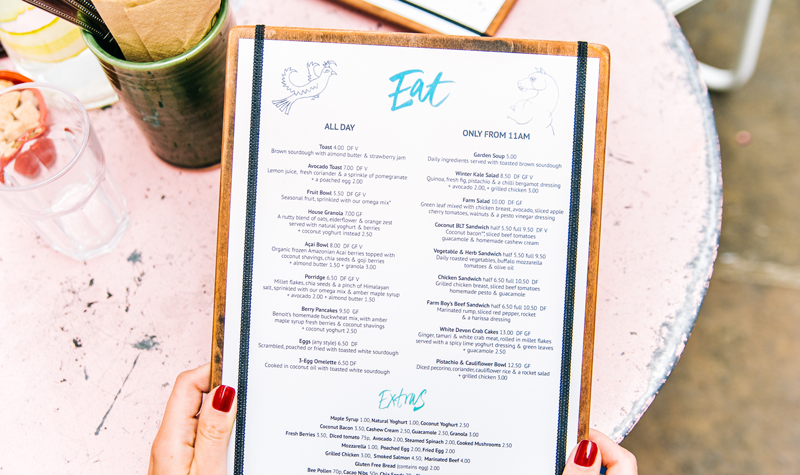 Eat
ALL DAY
Toast 4.00 DF V
Brown sourdough with almond butter & strawberry jam
Avocado Toast 7.00 DF V
Lemon juice, fresh coriander & a sprinkle of pomegranate
+ a poached egg 2.00
Fruit Bowl 5.50 DF GF V
Seasonal fruit, sprinkled with our omega mix*
House Granola 7.00 GF
A nutty blend of oats, elderflower & orange zest
served with natural yoghurt & berries
+ coconut yoghurt instead 2.50
Açai Bowl 8.00 DF GF V
Organic frozen Amazonian Acai berries topped with
coconut shavings, chia seeds & goji berries
+ almond butter 1.50 + granola 3.00
Porridge 6.50 DF GF V
Millet flakes, chia seeds & a pinch of Himalayan
salt, sprinkled with our omega mix & amber maple syrup
+ avocado 2.00 + almond butter 1.50
Berry Pancakes 9.50 GF
Benoit's homemade buckwheat mix, with amber
maple syrup fresh berries & coconut shavings
+ coconut yoghurt 2.50
Eggs (any style) 6.50 DF
Scrambled, poached or fried with toasted white sourdough
3-Egg Omelette 6.50 DF
Cooked in coconut oil with toasted white sourdough
ONLY FROM 11AM
Garden Soup 5.00
Daily ingredients served with toasted brown sourdough
Winter Kale Salad 8.50 DF GF V
Quinoa, fresh fig, pistachio & a chilli bergamot dressing
+ avocado 2.00, + grilled chicken 3.00
Farm Salad 10.00 DF GF
Green leaf mixed with chicken breast, avocado, sliced apple
cherry tomatoes, walnuts & a pesto vinegar dressing
Coconut BLT Sandwich half 5.50 full 9.50 DF V
Coconut bacon**, sliced beef tomatoes
guacamole & homemade cashew cream
Vegetable & Herb Sandwich half 5.50 full 9.50
Daily roasted vegetables, buffalo mozzarella
tomatoes & olive oil
Chicken Sandwich half 6.50 full 10.50 DF
Grilled chicken breast, sliced beef tomatoes
homemade pesto & guacamole
Farm Boy's Beef Sandwich half 6.50 full 10.50 DF
Marinated rump, sliced red pepper, rocket
& a harissa dressing
White Devon Crab Cakes 13.00 DF GF
Ginger, tamari & white crab meat, rolled in millet flakes
served with a spicy lime yoghurt dressing & green leaves
+ guacamole 2.50
Pistachio & Cauliflower Bowl 12.50 GF
Diced pecorino, coriander, cauliflower rice & a rocket salad
+ grilled chicken 3.00
Extras
Maple Syrup 1.00, Natural Yoghurt 1.00, Coconut Yoghurt 2.50
Coconut Bacon 3.50, Cashew Cream 2.50, Guacamole 2.50, Granola 3.00
Fresh Berries 3.50, Diced tomato 75p, Avocado 2.00, Steamed Spinach 2.00, Cooked Mushrooms 2.50
Mozzarella 1.00, Poached Egg 2.00, Fried Egg 2.00
Grilled Chicken 3.00, Smoked Salmon 4.50, Marinated Beef 4.00
Gluten Free Bread (contains egg) 2.00
Bee Pollen 70p, Cacao Nibs 50p, Chia Seeds